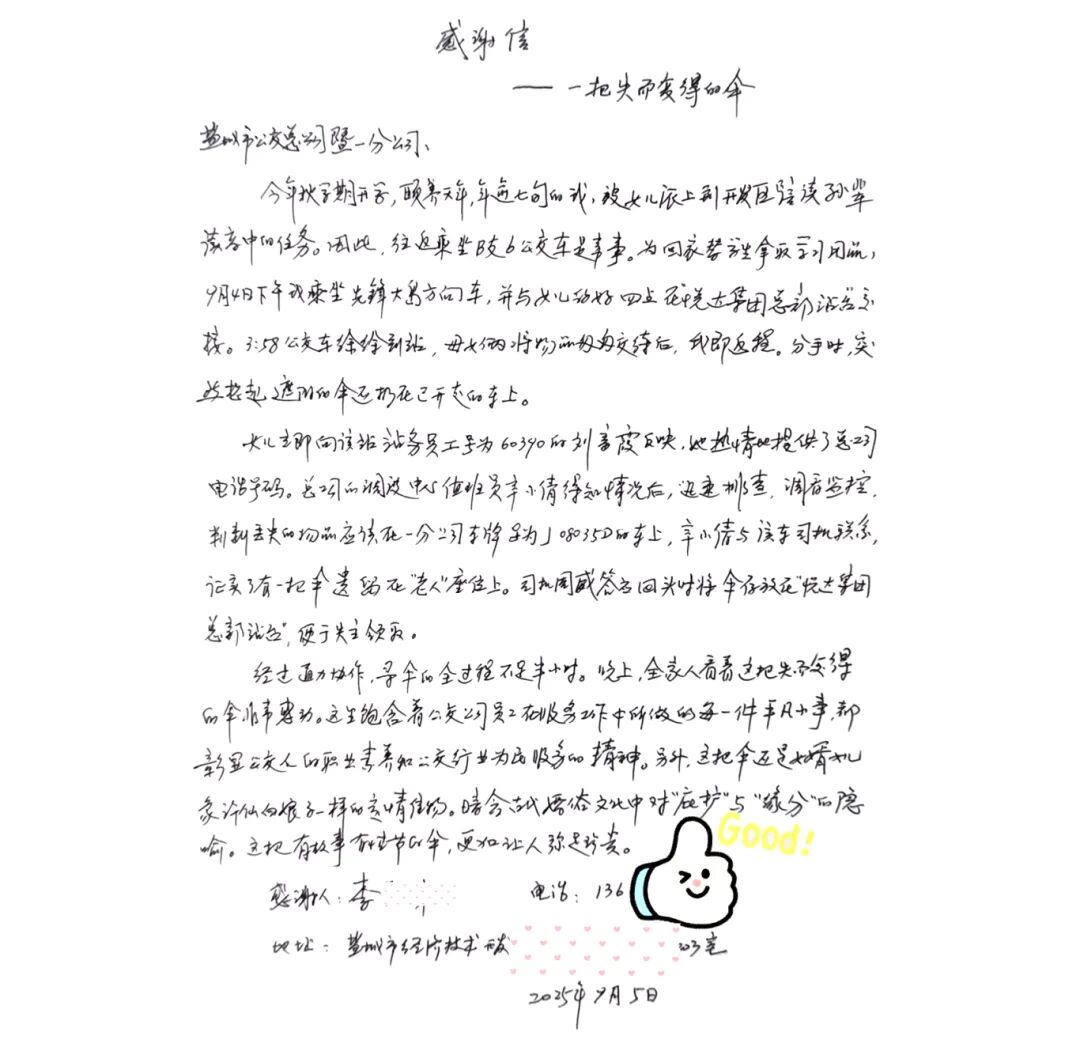 感谢信
—— 一把失而复得的伞
盐城市公交总公司暨一分公司、
今年秋学期开学,颐养天年,年近七旬的我,被女儿派上到开发区陪读孙辈
读高中的任务。因此,往返乘坐B支6公交车是常事。为回家替学生拿取学习用品,
9月4日下午我乘坐先锋大岛方向车,并与女儿约好四点在悦达集团总部站台交
接。3:58公交车徐徐到站,母女俩将物品匆匆交待后,我即返程。分手时,突
然想起遮阳的伞还扔在已开走的车上。
女儿立即向该站站务员工号为60390的刘 霞反映,她热情地提供了总公司
电话号码。总公司的调度中心值班员辛小倩得知情况后,迅速排查,调看监控,
判断丢失的物品应该在一分公司车牌号为J08035D的车上,辛小倩与该车司机联系,
证实了有一把伞遗留在"老人"座位上。司机周威答应回头时将伞存放在"悦达集团
总部站台",便于失主领取。
经过通力协作,寻伞的全过程不足半小时。晚上,全家人看着这把失而复得
的伞非常感动。这里饱含着公交公司员工在服务工作中所做的每一件平凡小事,都
彰显公交人的职业素养和公交行业为民服务的精神。另外,这把伞还是女婿女儿
象许仙白娘子一样的爱情信物。暗含古代婚俗文化中对"庇护"与"缘分"的隐
喻。这把有故事有情节的伞,更加让人弥足珍贵。
Good!
感谢人:李 电话:136
地址:盐城市经济技术开发 03室
2025年9月5日